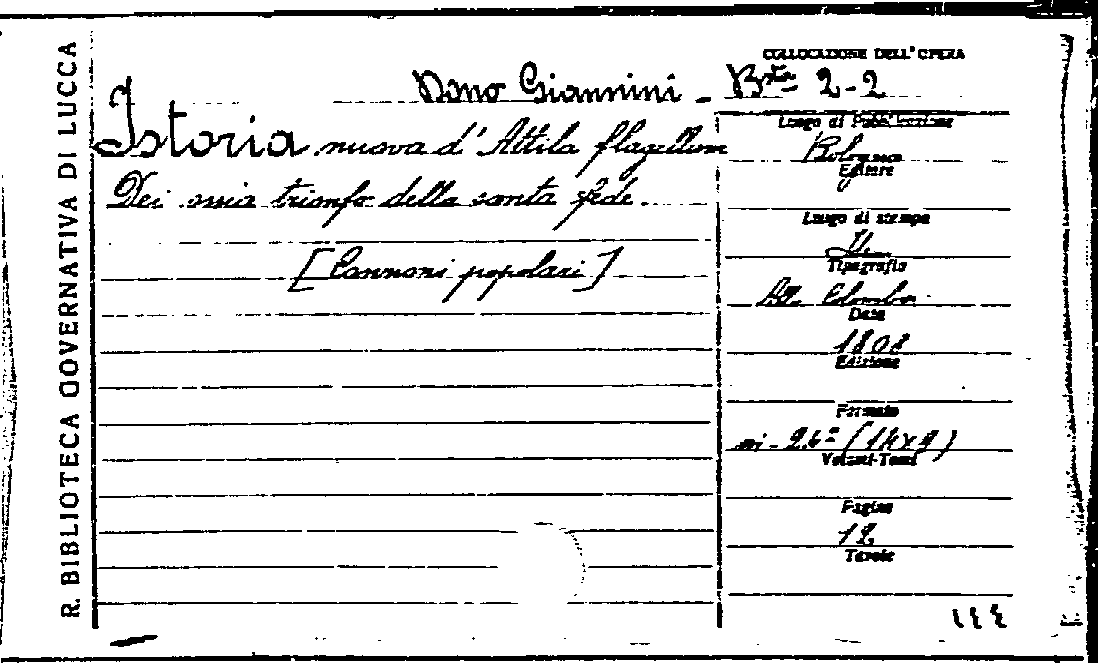 R. BIBLIOTECA GOVERNATIVA DI LUCCA
Dono Giannini -
Istoria nuova d'Attila flagellum
Dei ossia trionfo della santa fede.
[Canzoni popolari]
COLLOCAZIONE DELL'OPERA
Bta 2-2
Luogo di Pubblicazione
Bologna
Editore
Luogo di stampa
Tipografia
Alla Colomba
Data
1808
Edizione
Formato
in-24° (14x9)
Volumi-Tomi
Pagine
12
Tavole